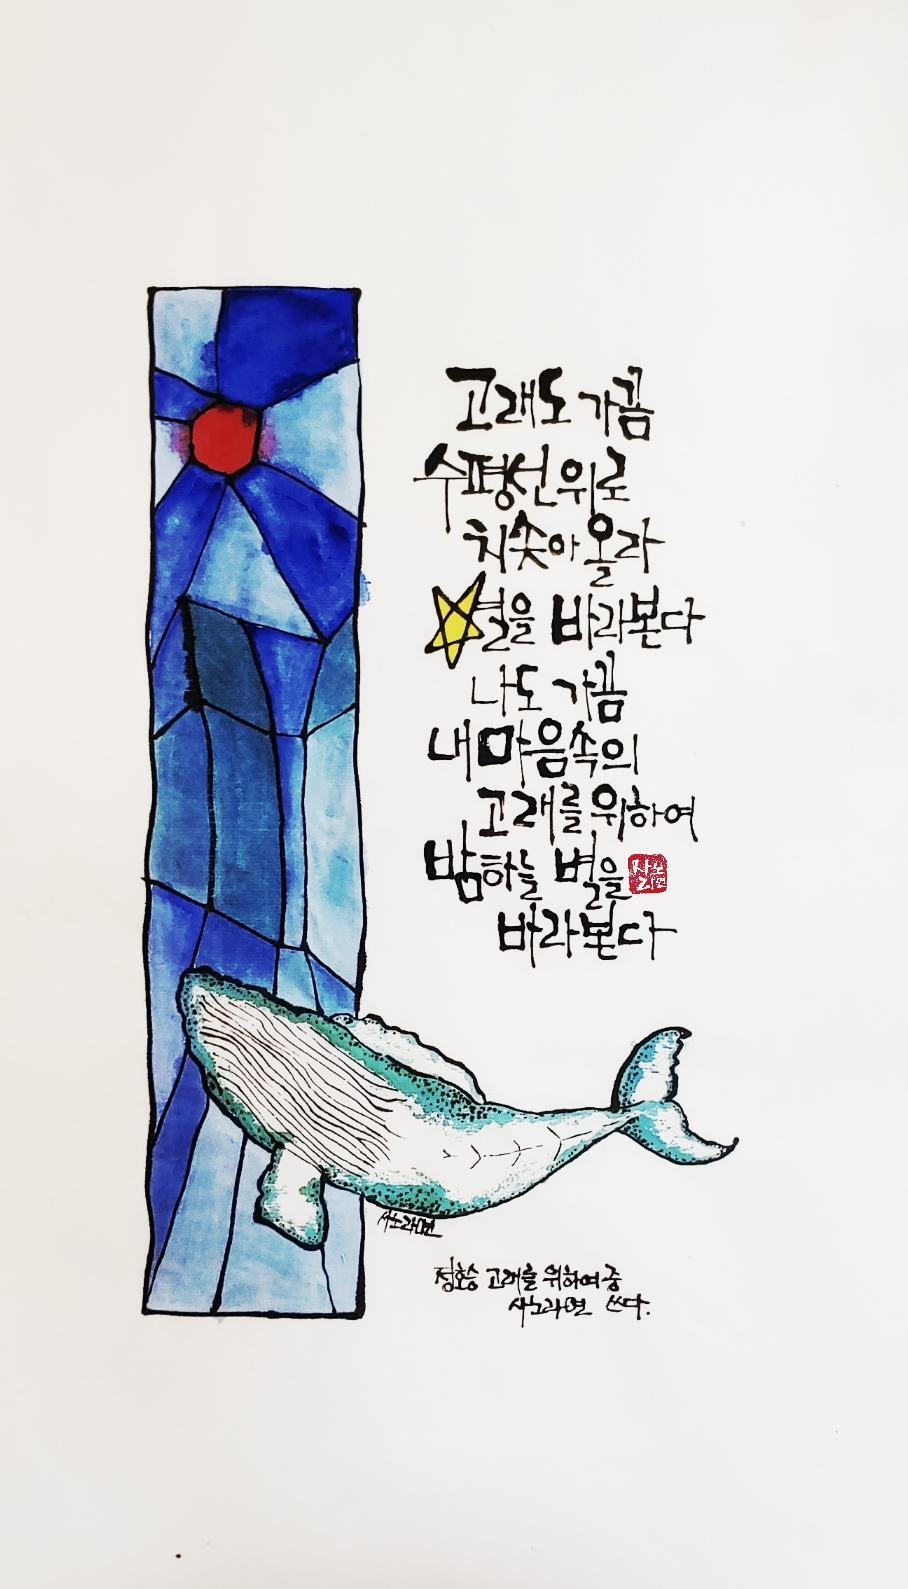 고래도 가끔
수평선 위로
치솟아 올라
별을 바라본다
나도 가끔
내 마음속의
고래를 위하여
밤하늘 별을
바라본다
사노라면
정호승 고래를 위하여 중
사노라면 쓰다.